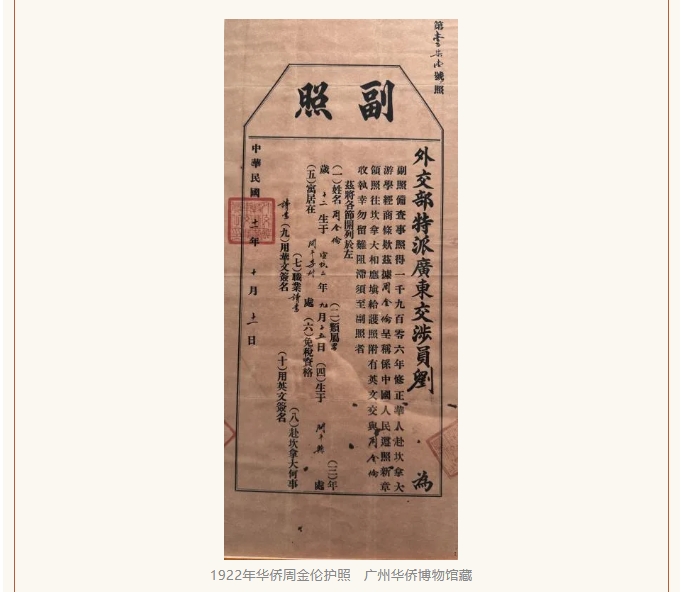 第壹柒號照
副照
外交部特派廣東交涉員劉 為
副照備查事照得一千九百零六年修正華人赴坎拿大
游學經商條欵茲據周金倫呈稱係中國人民遵照新章
領照往坎拿大相應填給護照附有英文交與周金倫
收執幸勿留難阻滯須至副照者
茲將各節開列於左
(一)姓名周金倫 (二)類屬 (三)年
歲十二生于 年九月十五日 (四)生于開平縣處
(五)寓居在開平 處 (六)免稅資格
(七)職業讀書 (八)赴坎拿大何事
讀書 (九)用華文簽名 (十)用英文簽名
中華民國十一年十月十二日
1922年华侨周金伦护照 广州华侨博物馆藏